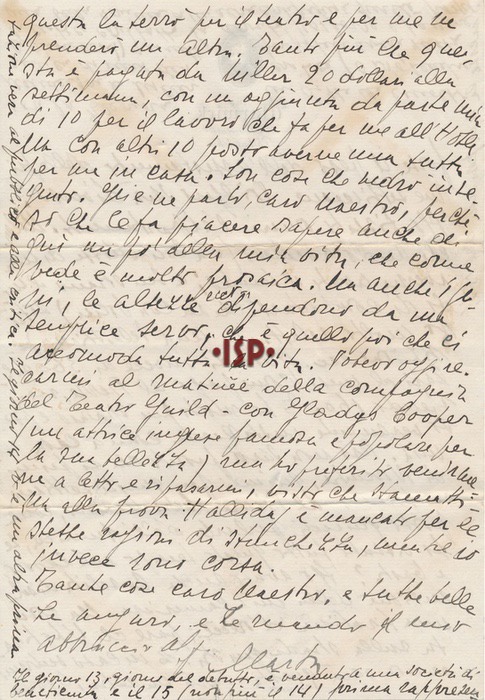 questa la terrò per il teatro e per me ne
prenderò un'altra. Tanto più che que-
sta è pagata da Miller 20 dollari alla
settimana, con un'aggiunta da parte mia
di 10 per il lavoro che fa per me all'Hotel.
Ma con altri 10 potrò averne una tutta
per me in casa. Son cose che vedrò in se-
guito. Gliene parlo, caro Maestro, perchè
so che le fa piacere sapere anche di
più un po' della mia vita, che come
vede è molto prosaica. Ma anche i ge-
ni, le altezze dipendono da un
semplice servo, che è quello poi che ci
accomoda tutta la vita. Potevo oggi re-
carmi al matinée della compagnia
del Teatro Guild - con Gladys Cooper
(un'attrice inglese famosa e popolare per
la sua bellezza) ma ho preferito venirme-
ne a letto e riposarmi, visto che stamatti-
na alla prova Halliday è mancato per le
stesse ragioni di stanchezza, mentre io
invece sono corsa.
Tante cose caro Maestro, e tutte belle
Le auguro, e Le mando il mio
abbraccio aff. Marta
Il giorno 13, giorno del debutto, è venduta a una società di
beneficenza e il 15 (non più il 14) prima rappresen-
tazione per il pubblico e alla critica. Il giorno 13 è un'altra prima
·ISP·